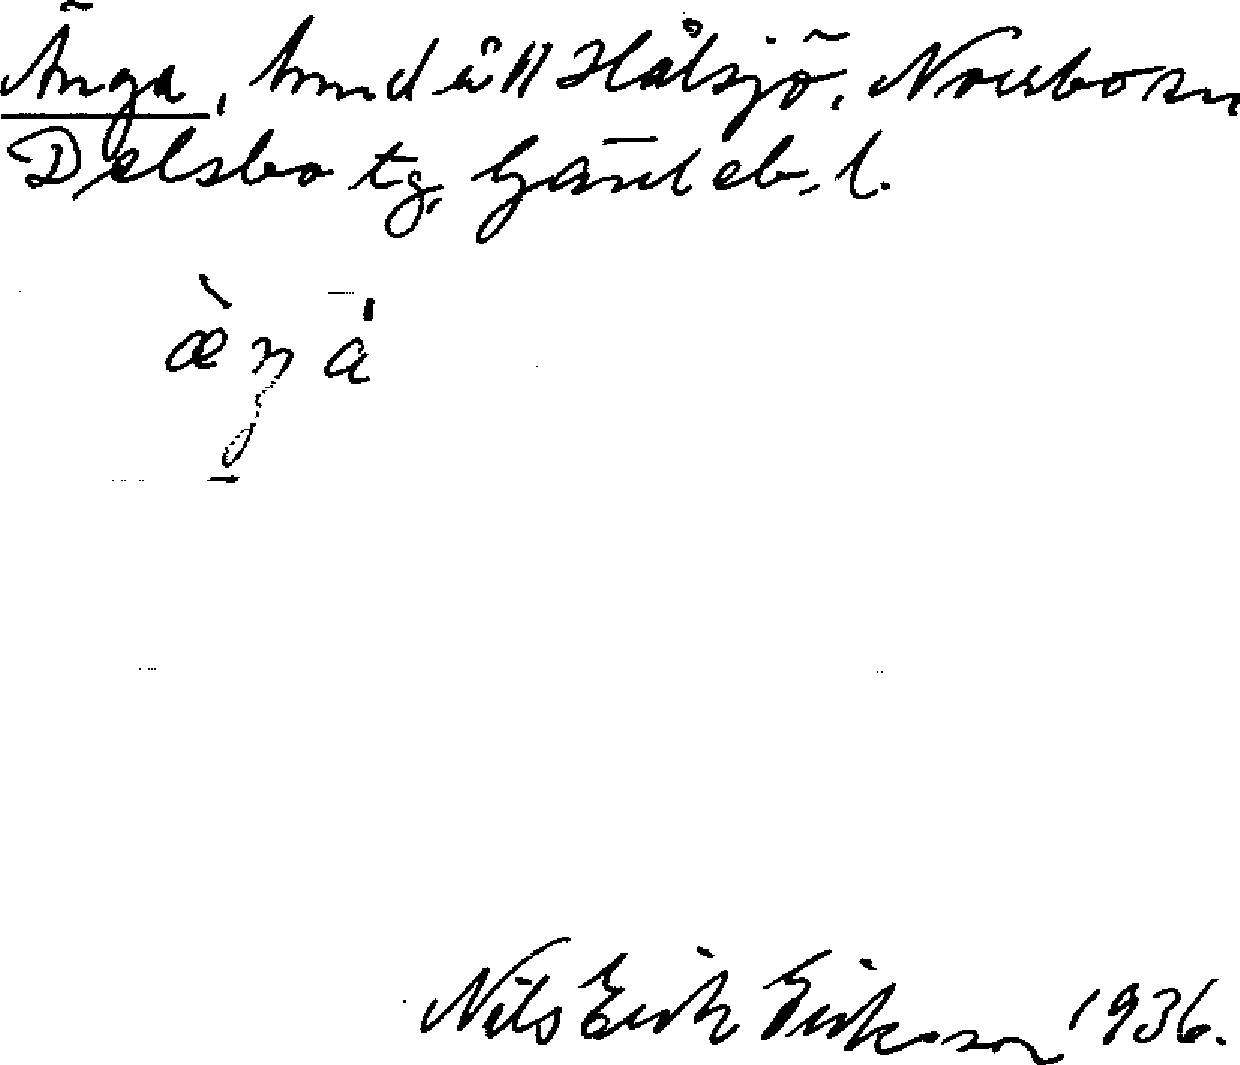 Änga, hmd ått Hålsjö, Norrbo sn
Delsbo tg, Gävleb. l.
æ̀ŋa
Nils Erik Eriksson 1936.